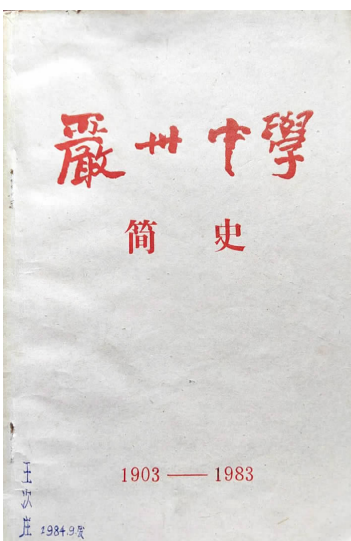 嚴州中學
简史
1903——1983
王次庄
1984.9发